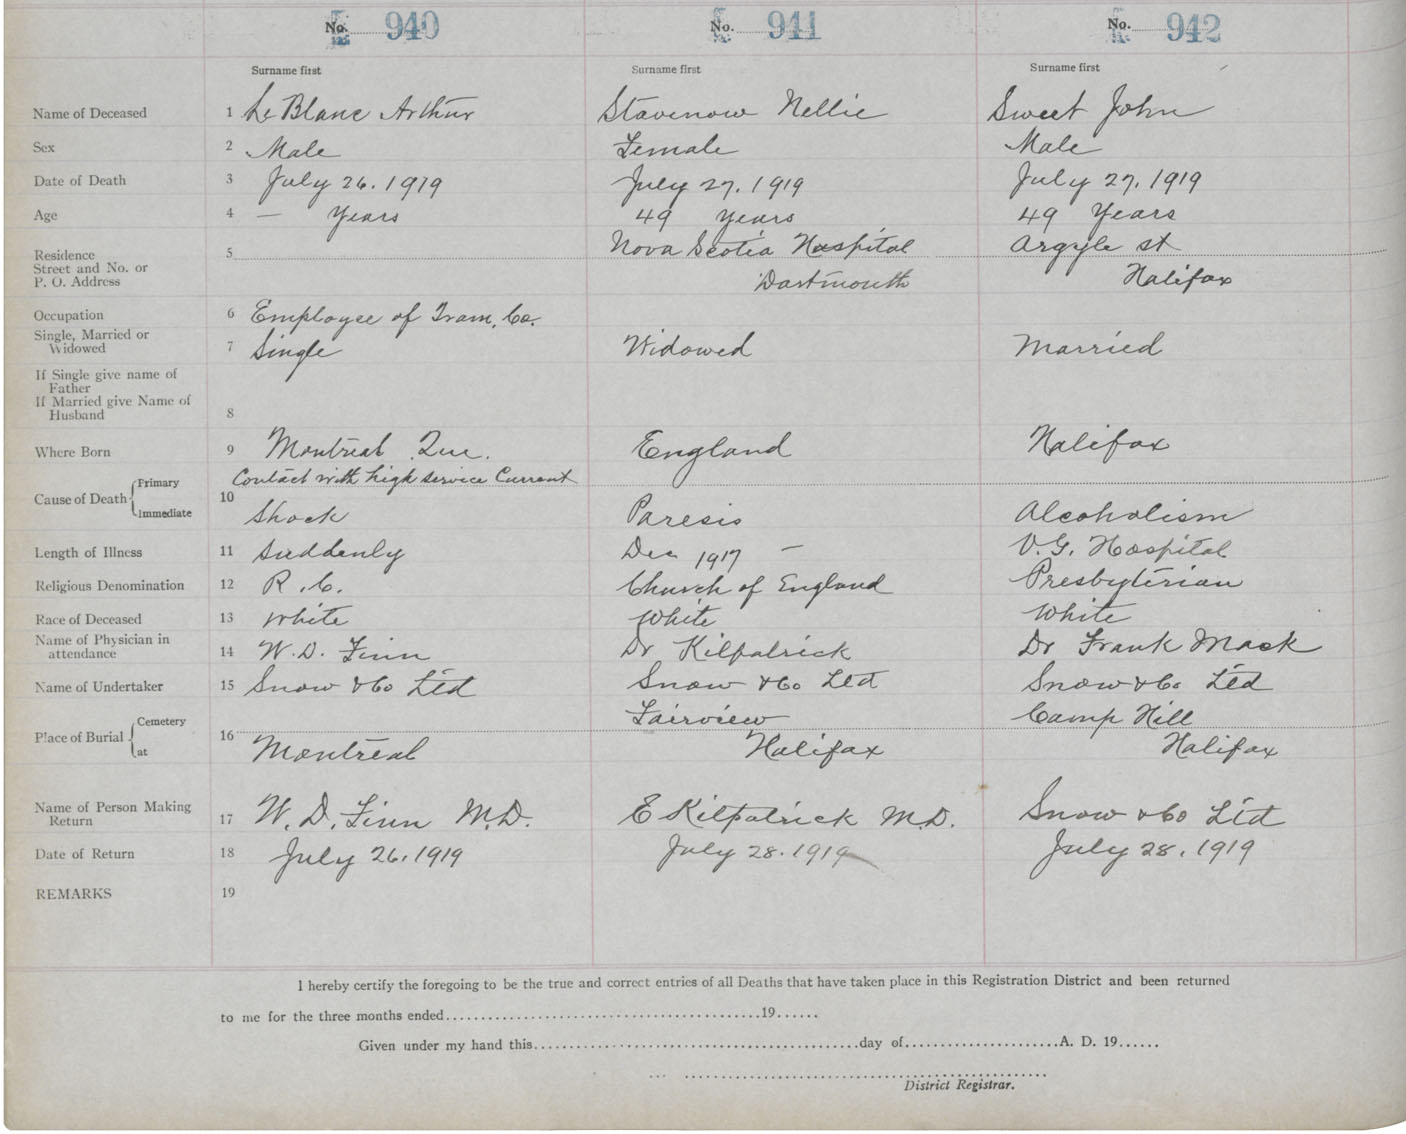 No. 940 No. 941 No. 942
Surname first Surname first Surname first
Name of Deceased 1 Le Blanc Arthur Stavenow Nellie Sweet John
Sex 2 Male Female Male
Date of Death 3 July 26. 1919 July 27, 1919 July 27, 1919
Age 4 — Years 49 Years 49 Years
Residence 5 Nova Scotia Hospital Argyle st
Street and No. or
P. O. Address Dartmouth Halifax
Occupation 6 Employee of Tram. Co.
Single, Married or
Widowed 7 Single Widowed Married
If Single give name of
Father
If Married give Name of
Husband 8
Where Born 9 Montreal Que. England Halifax
Primary Contact with high service Current
Cause of Death 10
Immediate Shock Paresis Alcoholism
Length of Illness 11 Suddenly Dec 1917 — V.G. Hospital
Religious Denomination 12 R.C. Church of England Presbyterian
Race of Deceased 13 White White White
Name of Physician in
attendance 14 W.D. Finn Dr Kilpatrick Dr Frank Mack
Name of Undertaker 15 Snow & Co Ltd Snow & Co Ltd Snow & Co Ltd
Cemetery Fairview Camp Hill
Place of Burial 16
at Montreal Halifax Halifax
Name of Person Making
Return 17 W. D. Finn M.D. E Kilpatrick M.D. Snow & Co Ltd
Date of Return 18 July 26, 1919 July 28. 1919 July 28, 1919
REMARKS 19
I hereby certify the foregoing to be the true and correct entries of all Deaths that have taken place in this Registration District and been returned
to me for the three months ended 19
Given under my hand this day of A. D. 19
District Registrar.